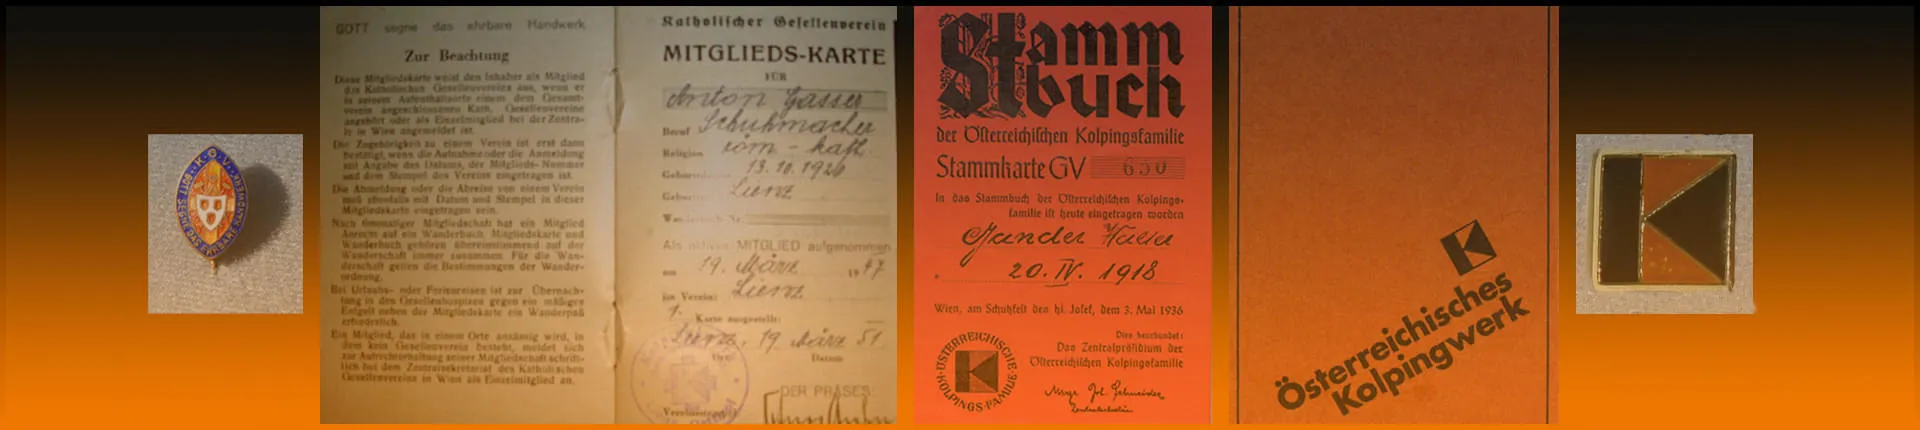 K·G·V·
GOTT SEGNE DAS EHRBARE HANDWERK
GOTT segne das ehrbare Handwerk
Zur Beachtung
Diese Mitgliedskarte weist den Inhaber als Mitglied
des Katholischen Gesellenvereins aus, wenn er
in seinem Aufenthaltsorte einem dem Gesamt-
verein angeschlossenen Kath. Gesellenvereine
angehört oder als Einzelmitglied bei der Zentra-
le in Wien angemeldet ist.
Die Zugehörigkeit zu einem Verein ist erst dann
bestätigt, wenn die Aufnahme oder die Anmeldung
mit Angabe des Datums, der Mitglieds-Nummer
und dem Stempel des Vereins eingetragen ist.
Die Abmeldung oder die Abreise von einem Verein
muß ebenfalls mit Datum und Stempel in dieser
Mitgliedskarte eingetragen sein.
Nach 6monatiger Mitgliedschaft hat ein Mitglied
Anrecht auf ein Wanderbuch. Mitgliedskarte und
Wanderbuch gehören übereinstimmend auf der
Wanderschaft immer zusammen. Für die Wan-
derschaft gelten die Bestimmungen der Wander-
ordnung.
Bei Urlaubs- oder Ferienreisen ist zur Übernach-
tung in den Gesellenhospizen gegen ein mäßiges
Entgelt neben der Mitgliedskarte ein Wanderpaß
erforderlich.
Ein Mitglied, das in einem Orte ansässig wird, in
dem kein Gesellenverein besteht, meldet sich
zur Aufrechterhaltung seiner Mitgliedschaft schrift-
lich bei dem Zentralsekretariat des Katholischen
Gesellenvereins in Wien als Einzelmitglied an.
Katholischer Gesellenverein
MITGLIEDS-KARTE
FÜR
Anton Gasser
Beruf Schuhmacher
Religion röm-kath.
13.10.1926
Lienz
Als aktives MITGLIED aufgenommen
am 19. März 1947
im Verein: Lienz
1. Karte ausgestellt:
Lienz, 19 März 51
Ort Datum
DER PRÄSES:
Stammbuch
der Österreichischen Kolpingsfamilie
Stammkarte GV 650
In das Stammbuch der Österreichischen Kolpings-
familie ist heute eingetragen worden
Gander
20. IV. 1918
Wien, am Schutzfest des hl. Josef, dem 3. Mai 1936
Dies beurkundet:
Das Zentralpräsidium der
Österreichischen Kolpingsfamilie
ÖSTERREICHISCHE KOLPINGS-FAMILIE
Österreichisches
Kolpingwerk